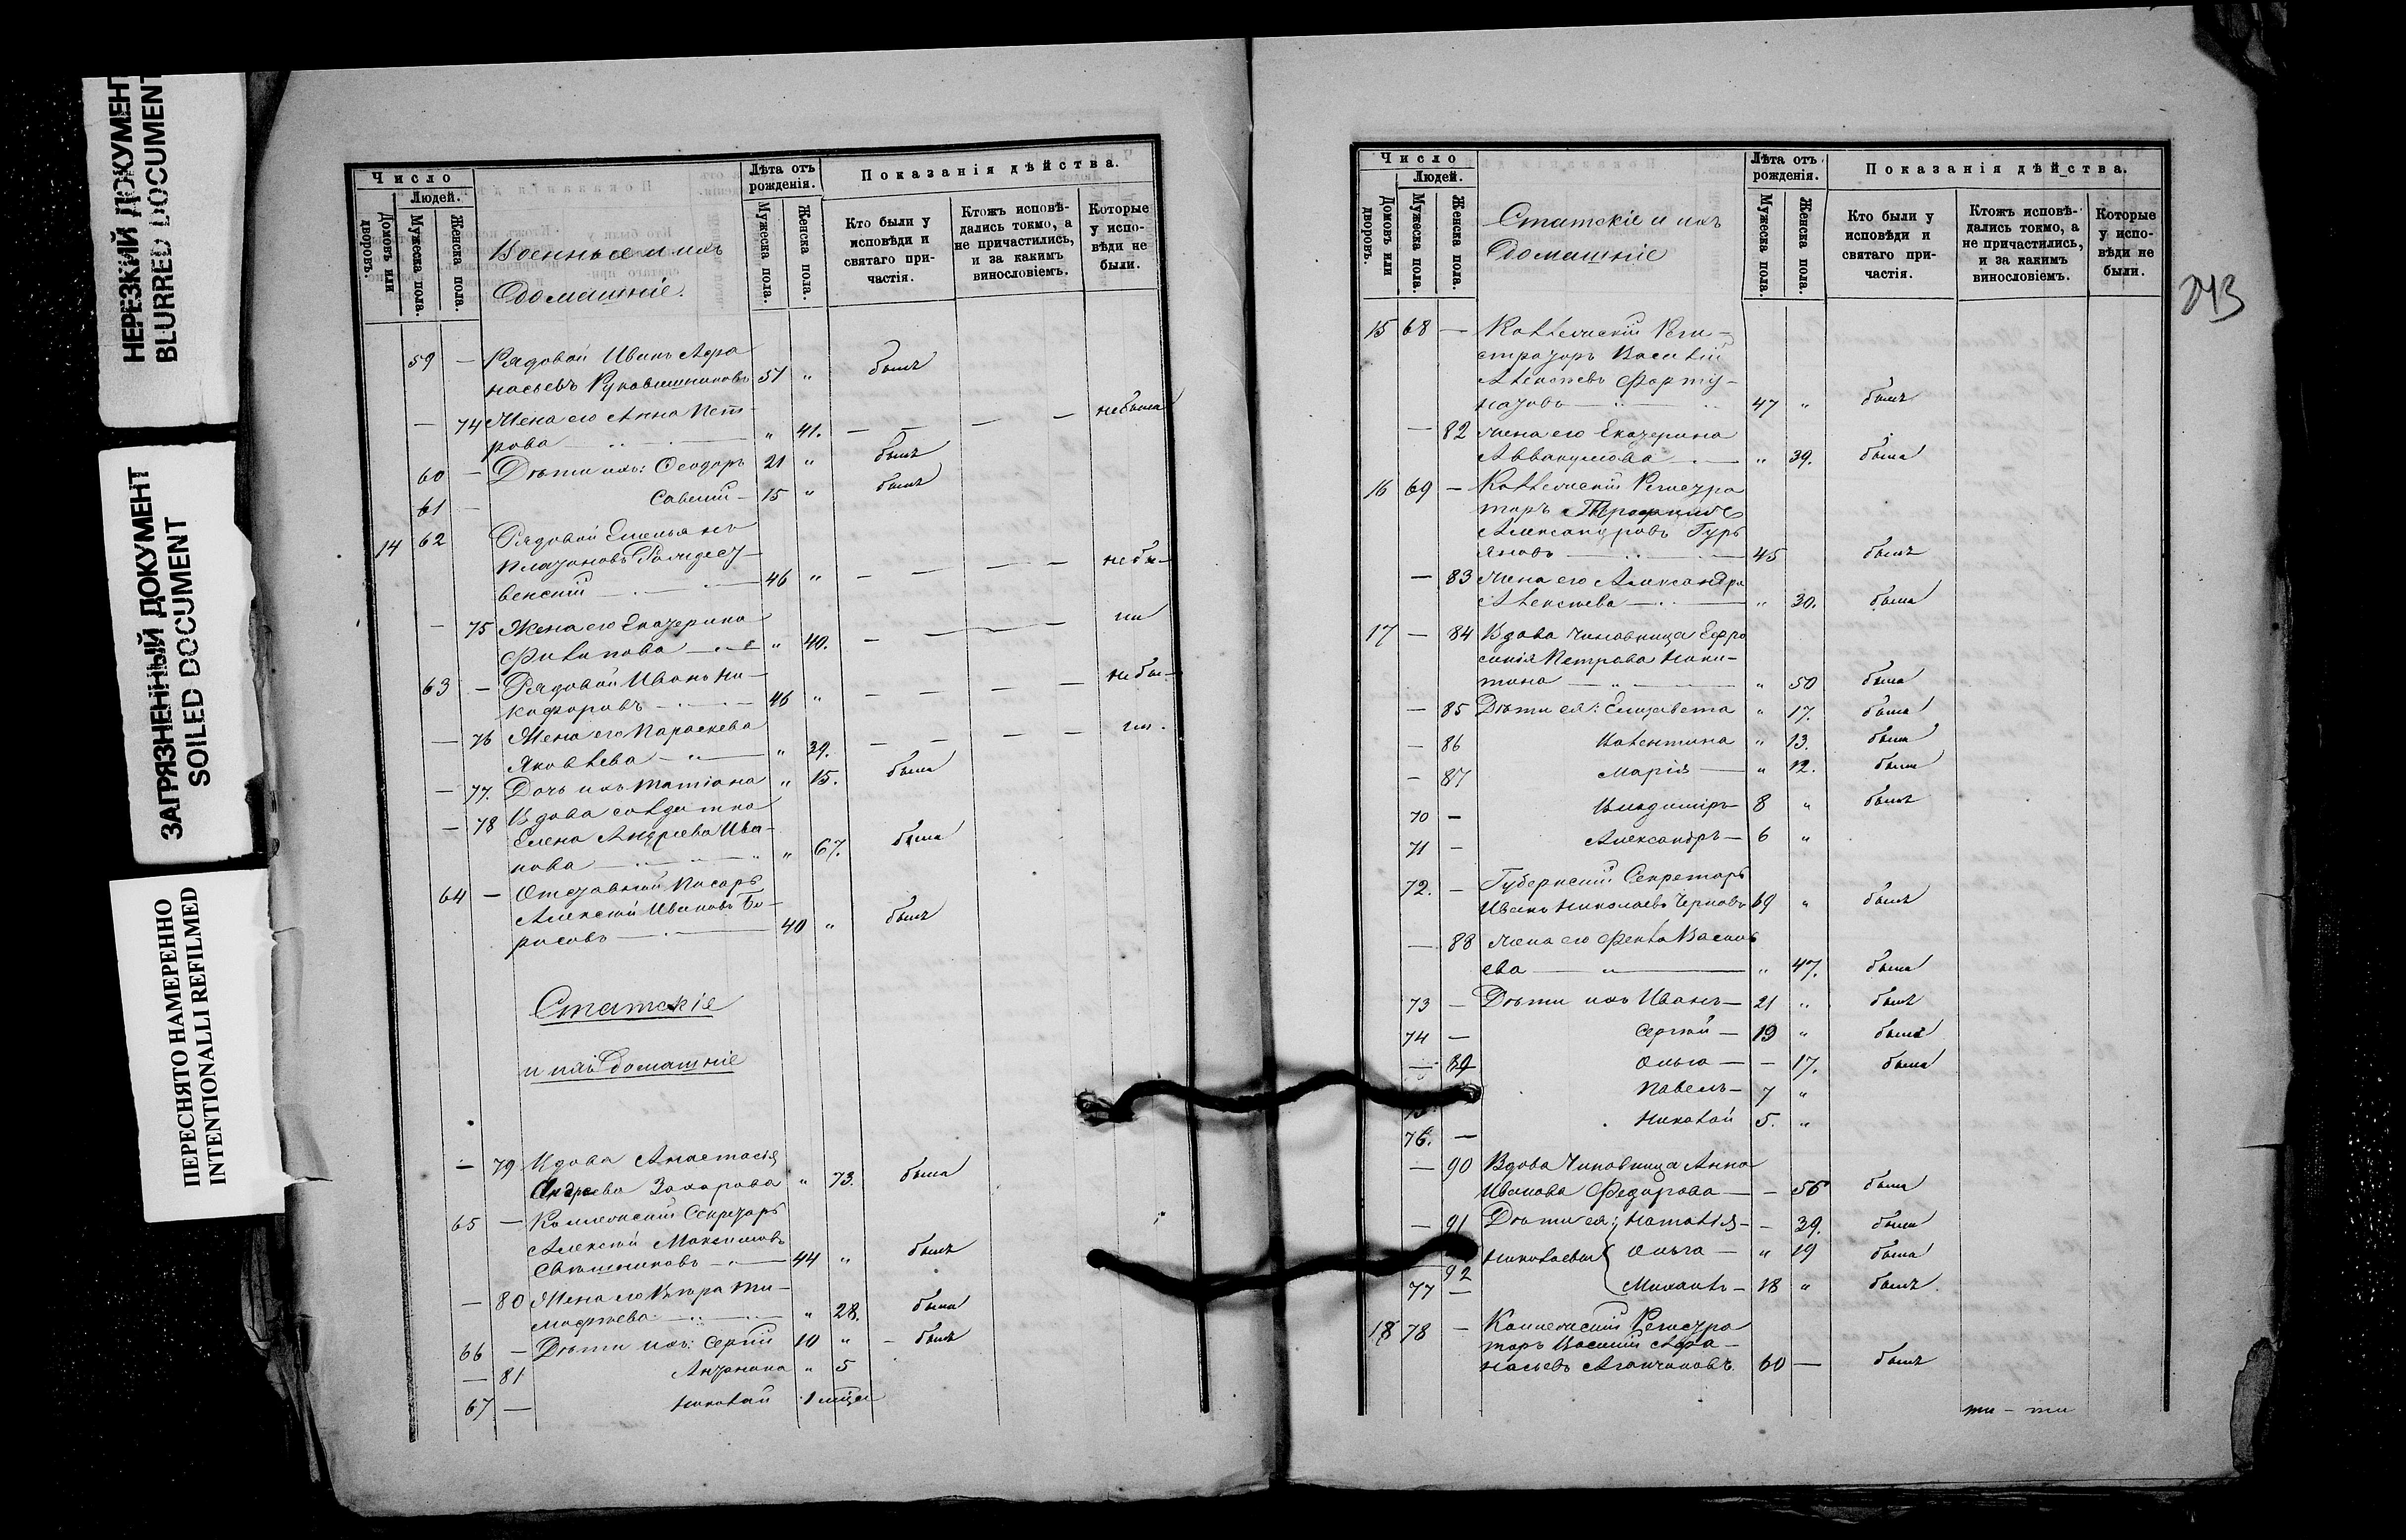 НЕРЕЗКИЙ ДОКУМЕНТ
BLURRED DOCUMENT
ЗАГРЯЗНЕННЫЙ ДОКУМЕНТ
SOILED DOCUMENT
ПЕРЕСНЯТО НАМЕРЕННО
INTENTIONALLI REFILMED
Число
Людей.
Домовъ или дворовъ.
Мужеска пола.
Женска пола.
Военные и ихъ
Домашніе.
Лѣта отъ рожденія.
Мужеска пола.
Женска пола.
Показанія дѣйства.
Кто были у исповѣди и святаго причастія.
Ктожъ исповѣдались токмо, а не причастились, и за какимъ винословіемъ.
Которые у исповѣди не были.
59 — Рядовой Иванъ Афа
насьевъ Рукавишниковъ 51 " былъ
— 74 Жена его Анна Пет-
рова " 41. — — — — не была
60 — Дѣти ихъ: Ѳеодоръ 21 " былъ
61 — Савелій — 15 " былъ
14 62 Рядовой Емельянъ
Платоновъ Рождест-
венскій — 46 " — — — — не бы-
— 75 Жена его Екатерина
Филипова — " 40. — — — — ли
63 — Рядовой Иванъ Ни-
кифоровъ — 46 " — — — — не бы-
— 76 Жена его Параскева
Яковлева — " 39. — — — — ли.
— 77. Дочь ихъ Татіана " 15. была
— 78 Вдова солдатка
Елена Андреева Ива-
нова — " 67. была
64 — Отставной Писарь
Алексѣй Ивановъ Бо-
рисовъ — 40 " былъ
Статскіе
и ихъ Домашніе
— 79 Вдова Анастасія
Андреева Захарова " 73. была
65 — Коллежскій Секретарь
Алексѣй Максимовъ
Свѣшниковъ — 44 " былъ
— 80 Жена его Вѣра Ти-
мофѣева — " 28. была
66 — Дѣти ихъ: Сергій 10 " — былъ
— 81 Антонина " 5
67 — Николай 1 мѣсяц
243
Число
Людей.
Домовъ или дворовъ.
Мужеска пола.
Женска пола.
Статскіе и ихъ
Домашніе
Лѣта отъ рожденія.
Мужеска пола.
Женска пола.
Показанія дѣйства.
Кто были у исповѣди и святаго причастія.
Ктожъ исповѣдались токмо, а не причастились, и за какимъ винословіемъ.
Которые у исповѣди не были.
15 68 — Коллежскій Реги-
страторъ Василій
Алексѣевъ Форту-
натовъ — 47 " былъ
— 82 Жена его Екатерина
Аввакумова — " 39. была
16 69 — Коллежскій Регистра
торъ Трофимъ
Александровъ Гурь
яновъ — 45 былъ
— 83 Жена его Александра
Алексѣева — " 30. была
17 — 84 Вдова Чиновница Евфро
синія Петрова Ники-
тина — " 50 была
— 85 Дѣти ея: Елизавета " 17. была
— 86 Валентина " 13. была
— 87 Марія — " 12. была
70 — Владиміръ 8 " былъ
71 — Александръ — 6 "
72. — Губернскій Секретарь
Иванъ Николаевъ Черновъ 69 " былъ
— 88 Жена его Фекла Василь
ева — " 47. была
73 — Дѣти ихъ Иванъ — 21 " былъ
74 — Сергѣй — 19 " былъ
— 89 Ольга — — 17. была
Павелъ — 7 "
76. — Николай 5. "
— 90 Вдова Чиновница Анна
Иванова Федорова — — 56 была
— 91 Дѣти ея: Наталія — — 39. была
92 Николаевы Ольга — " 19 была
77 — Михаилъ — 18 " былъ
18 78 — Коллежскій Регистра
торъ Василій Афа-
насьевъ Агапчиковъ 60 — былъ